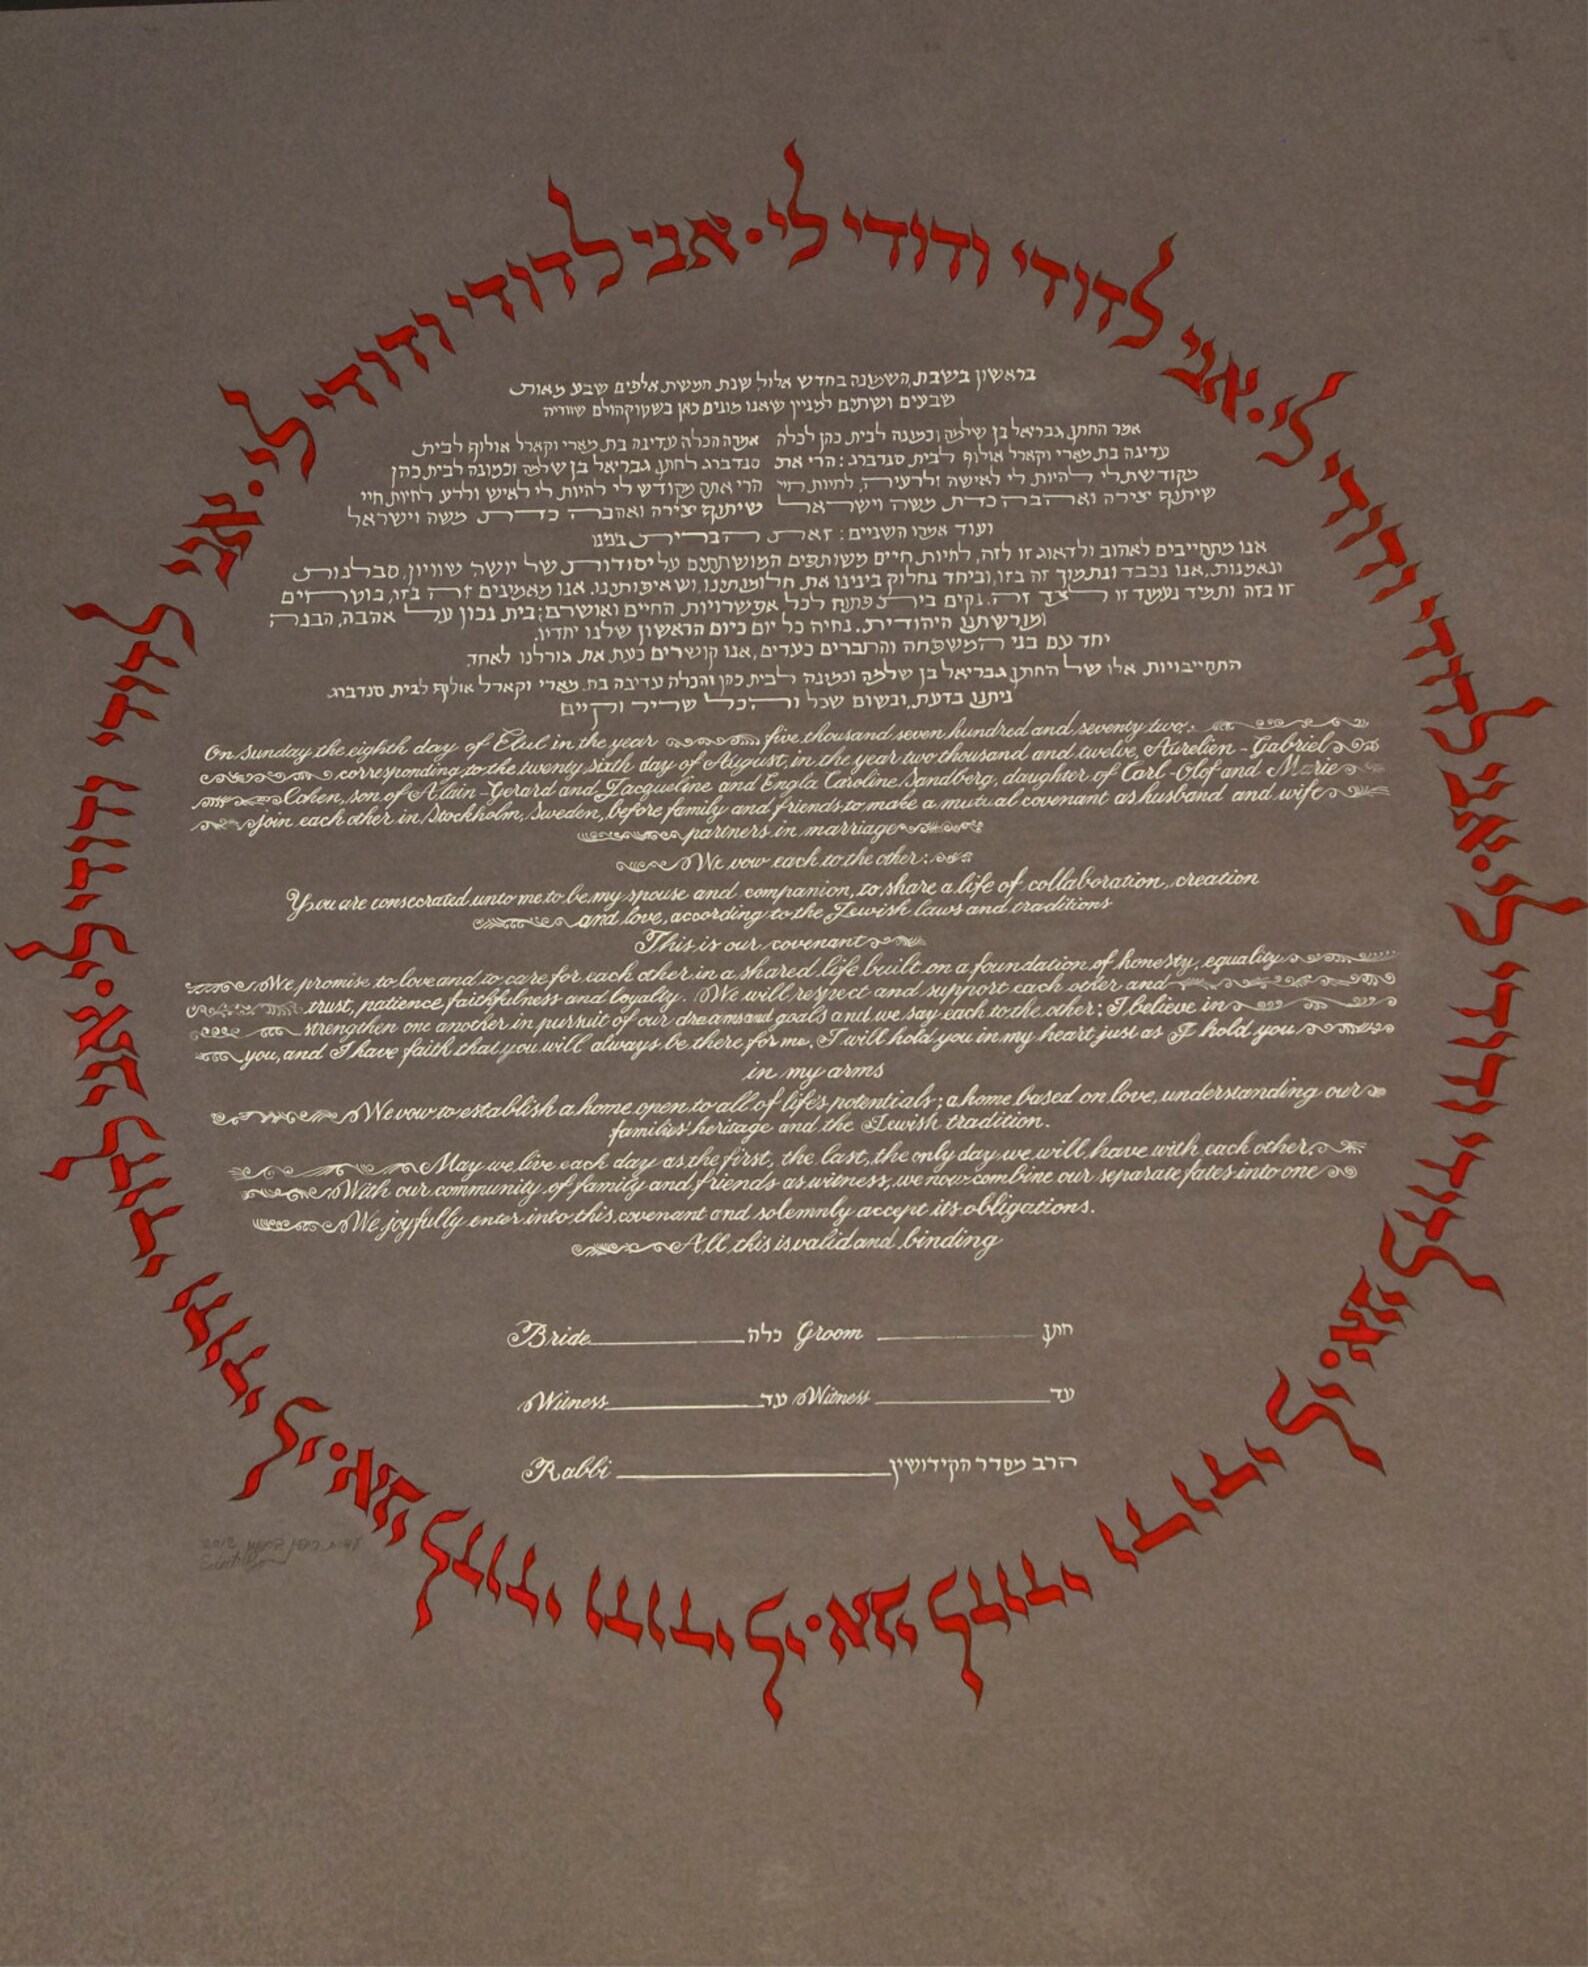 אני לדודי ודודי לי • אני לדודי ודודי לי • אני לדודי ודודי לי • אני לדודי ודודי לי • אני לדודי ודודי לי • אני לדודי ודודי לי • אני לדודי ודודי לי •
בראשון בשבת, השמונה בחדש אלול שנת חמשת אלפים שבע מאות
שבעים ושתים למניין שאנו מונים כאן בשטוקהולם שוודיה
אמר החתן גבריאל בן שלמה וכמונה לבית כהן לכלה
עדינה בת מארי וקארל אולוף לבית סנדברג: הרי את
מקודשת לי להיות לי לאישה ולרעיה, לחיות חיי
שיתוף יצירה ואהבה כדת משה וישראל
אמרה הכלה עדינה בת מארי וקארל אולוף לבית
סנדברג לחתן גבריאל בן שלמה וכמונה לבית כהן
הרי אתה מקודש לי להיות לי לאיש ולרע לחיות חיי
שיתוף יצירה ואהבה כדת משה וישראל
ועוד אמרו השניים: זאת הברית בינינו
אנו מתחייבים לאהוב ולדאוג זו לזה, לחיות חיים משותפים המושתתים על יסודות של יושר, שוויון, סבלנות
ונאמנות. אנו נכבד ונתמוך זה בזו, וביחד נחלוק בינינו את חלומנתינו ושאיפותינו. אנו מאמינים זה בזו, בוטחים
זו בזה ותמיד נעמוד זו לצד זה. נקים בית פתוח לכל אפשרויות החיים ואושרם; בית נכון על אהבה, הבנה
ומורשתנו היהודית. נחיה כל יום כיום הראשון שלנו יחדיו.
יחד עם בני המשפחה והחברים כעדים, אנו קושרים כעת את גורלנו לאחד.
התחייבויות אלו של החתן גבריאל בן שלמה וכמונה לבית כהן והכלה עדינה בת מארי וקארל אולוף לבית סנדברג
ניתנו בדעת, ובשום שכל והכל שריר וקיים
On Sunday the eighth day of Elul in the year five thousand seven hundred and seventy two.
corresponding to the twenty sixth day of August, in the year two thousand and twelve, Aurelien - Gabriel
Cohen, son of Alain - Gerard and Jacqueline and Engla Caroline Sandberg, daughter of Carl - Olof and Marie
join each other in Stockholm, Sweden, before family and friends to make a mutual covenant as husband and wife
partners in marriage
We vow each to the other:
You are consecrated unto me to be my spouse and companion, to share a life of collaboration, creation
and love, according to the Jewish laws and traditions
This is our covenant
We promise to love and to care for each other in a shared life built on a foundation of honesty, equality
trust, patience faithfulness and loyalty. We will respect and support each other and
strengthen one another in pursuit of our dreams and goals and we say each to the other: I believe in
you, and I have faith that you will always be there for me. I will hold you in my heart just as I hold you
in my arms
We vow to establish a home open to all of life's potentials; a home based on love, understanding our
families' heritage and the Jewish tradition.
May we live each day as the first, the last, the only day we will have with each other.
With our community of family and friends as witness, we now combine our separate fates into one
We joyfully enter into this covenant and solemnly accept its obligations.
All this is valid and binding
Bride כלה Groom חתן
Witness עד Witness עד
Rabbi הרב מסדר הקידושין
2012